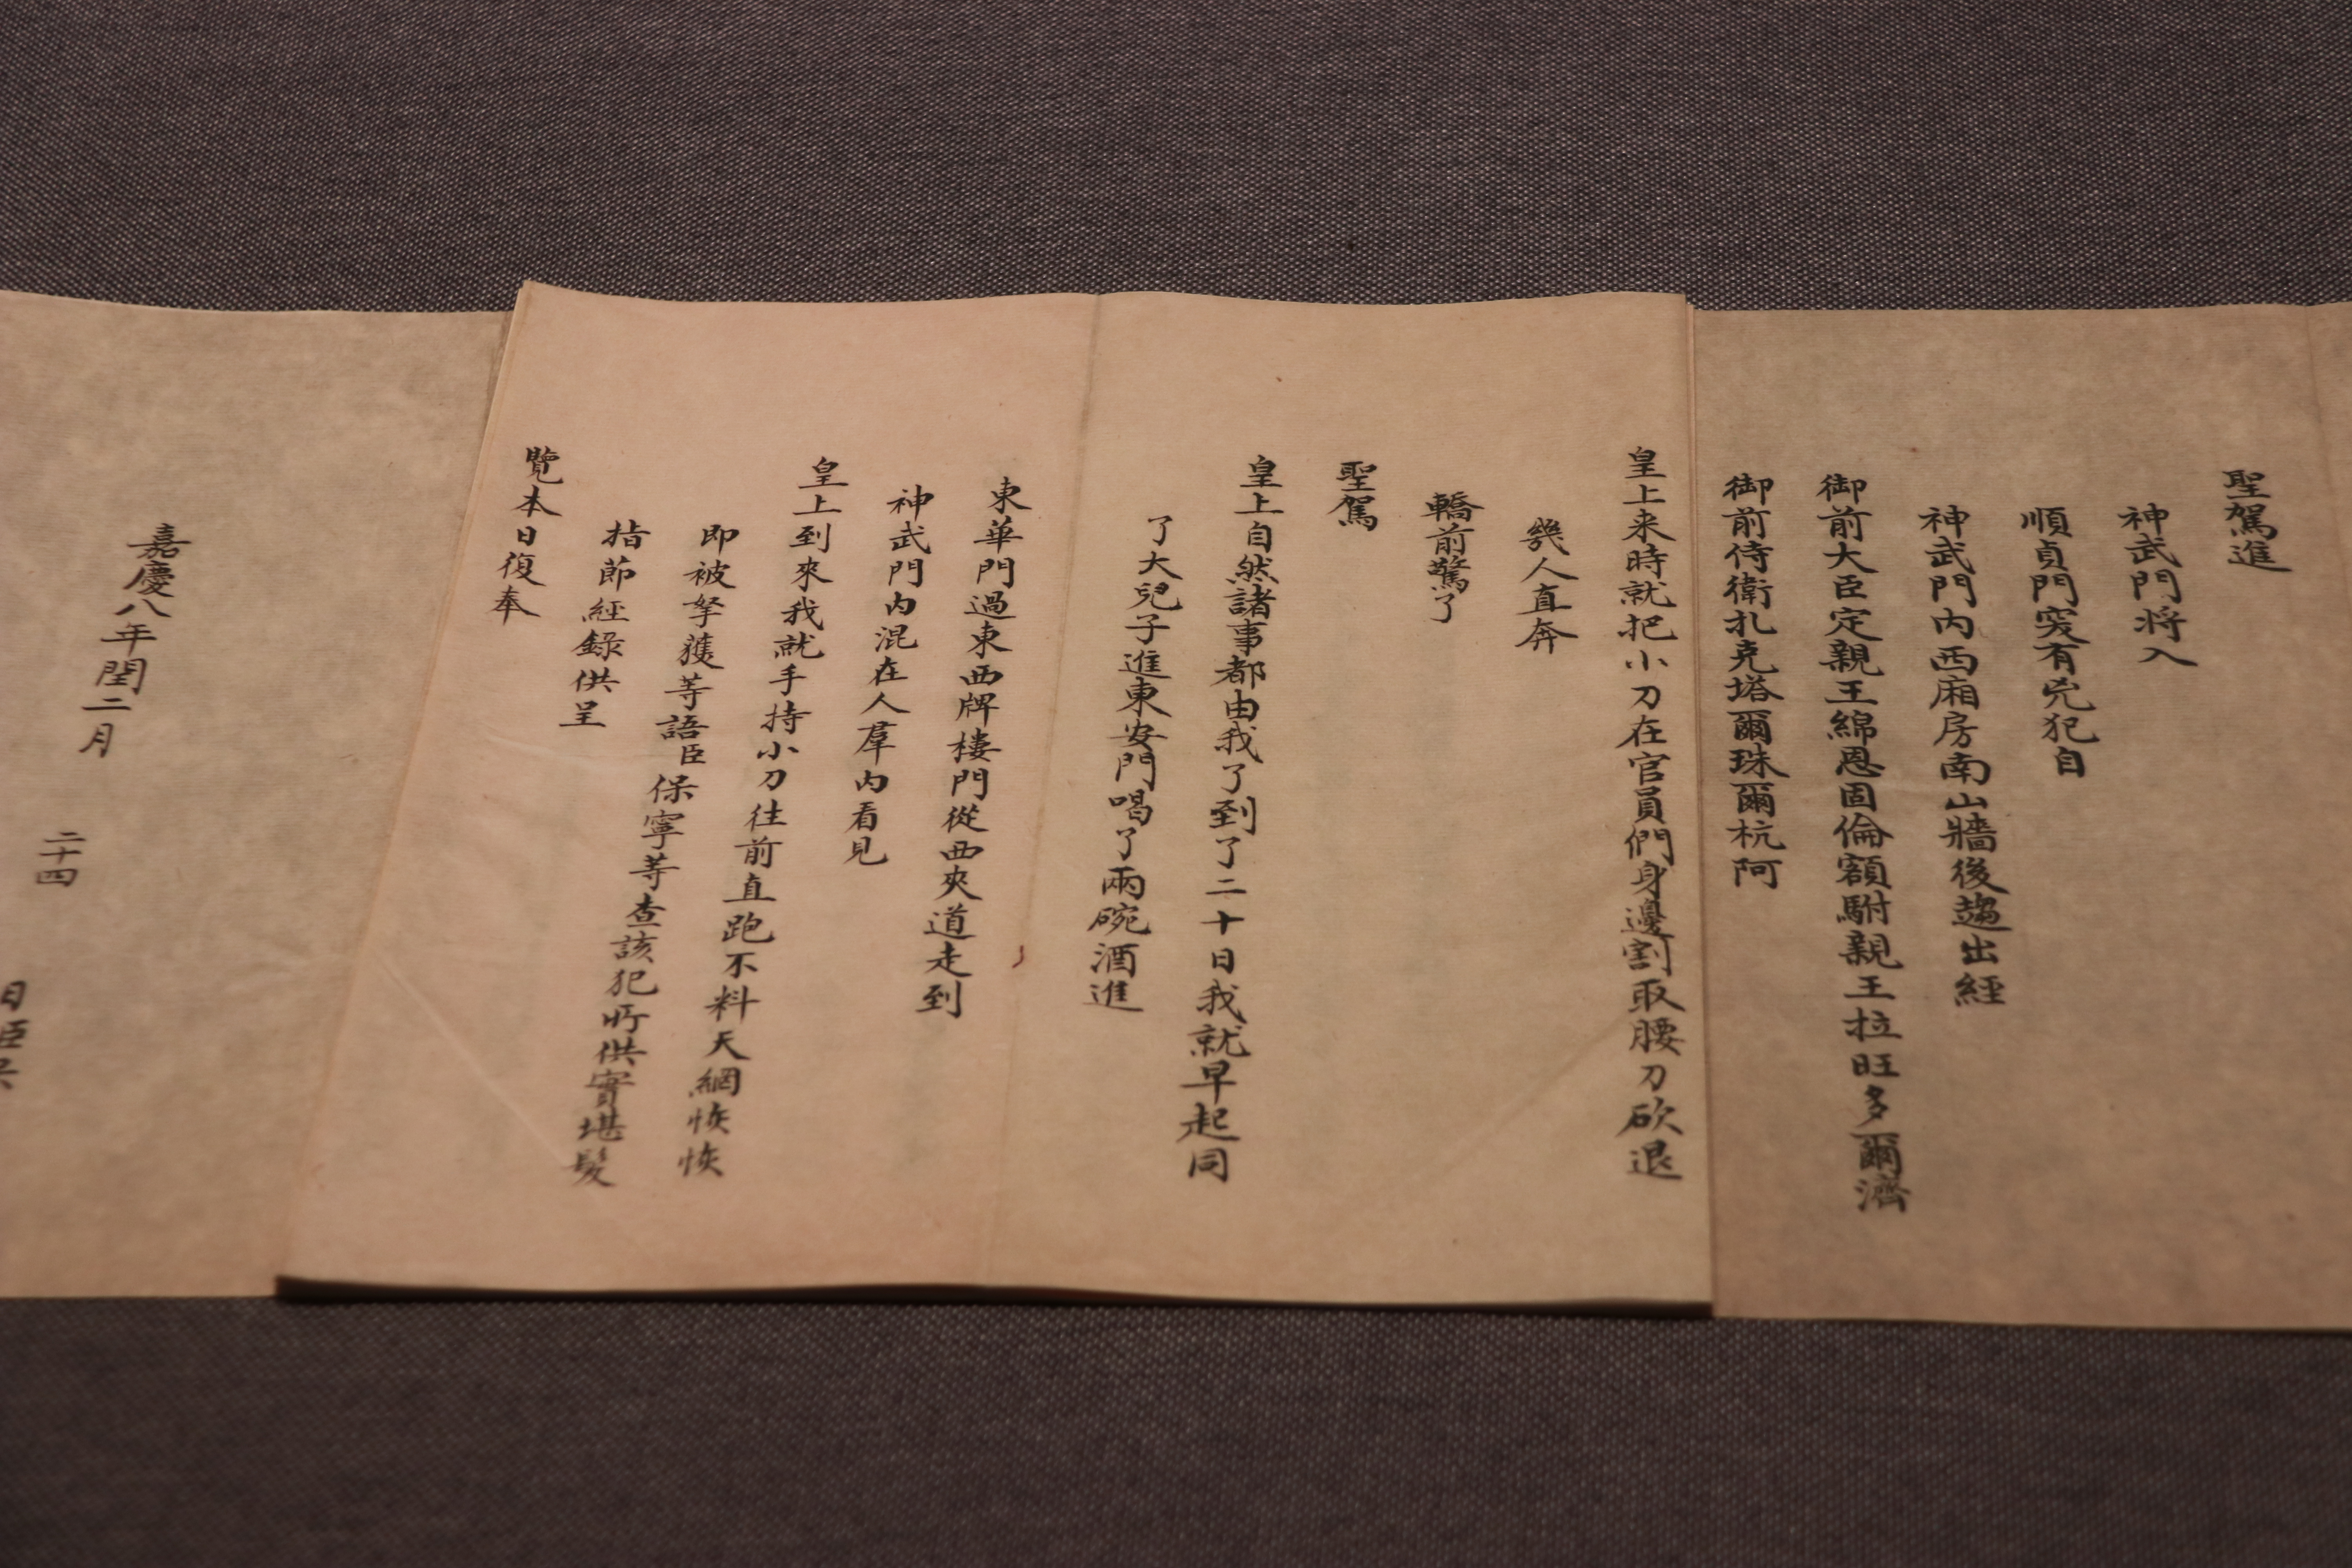 聖駕進
神武門將入
順貞門突有兇犯自
神武門內西廂房南山牆後趨出經
御前大臣定親王綿恩固倫額駙親王拉旺多爾濟
御前侍衛扎克塔爾珠爾杭阿
皇上来時就把小刀在官員們身邊割取腰刀砍退
幾人直奔
轎前驚了
聖駕
皇上自然諸事都由我了到了二十日我就早起同
了大兒子進東安門喝了兩碗酒進
東華門過東西牌樓門從西夾道走到
神武門內混在人羣內看見
皇上到來我就手持小刀往前直跑不料天網恢恢
即被拏獲等語臣保寧等查該犯所供實堪髮
指節經錄供呈
覽本日復奉
嘉慶八年閏二月
二十四
日臣